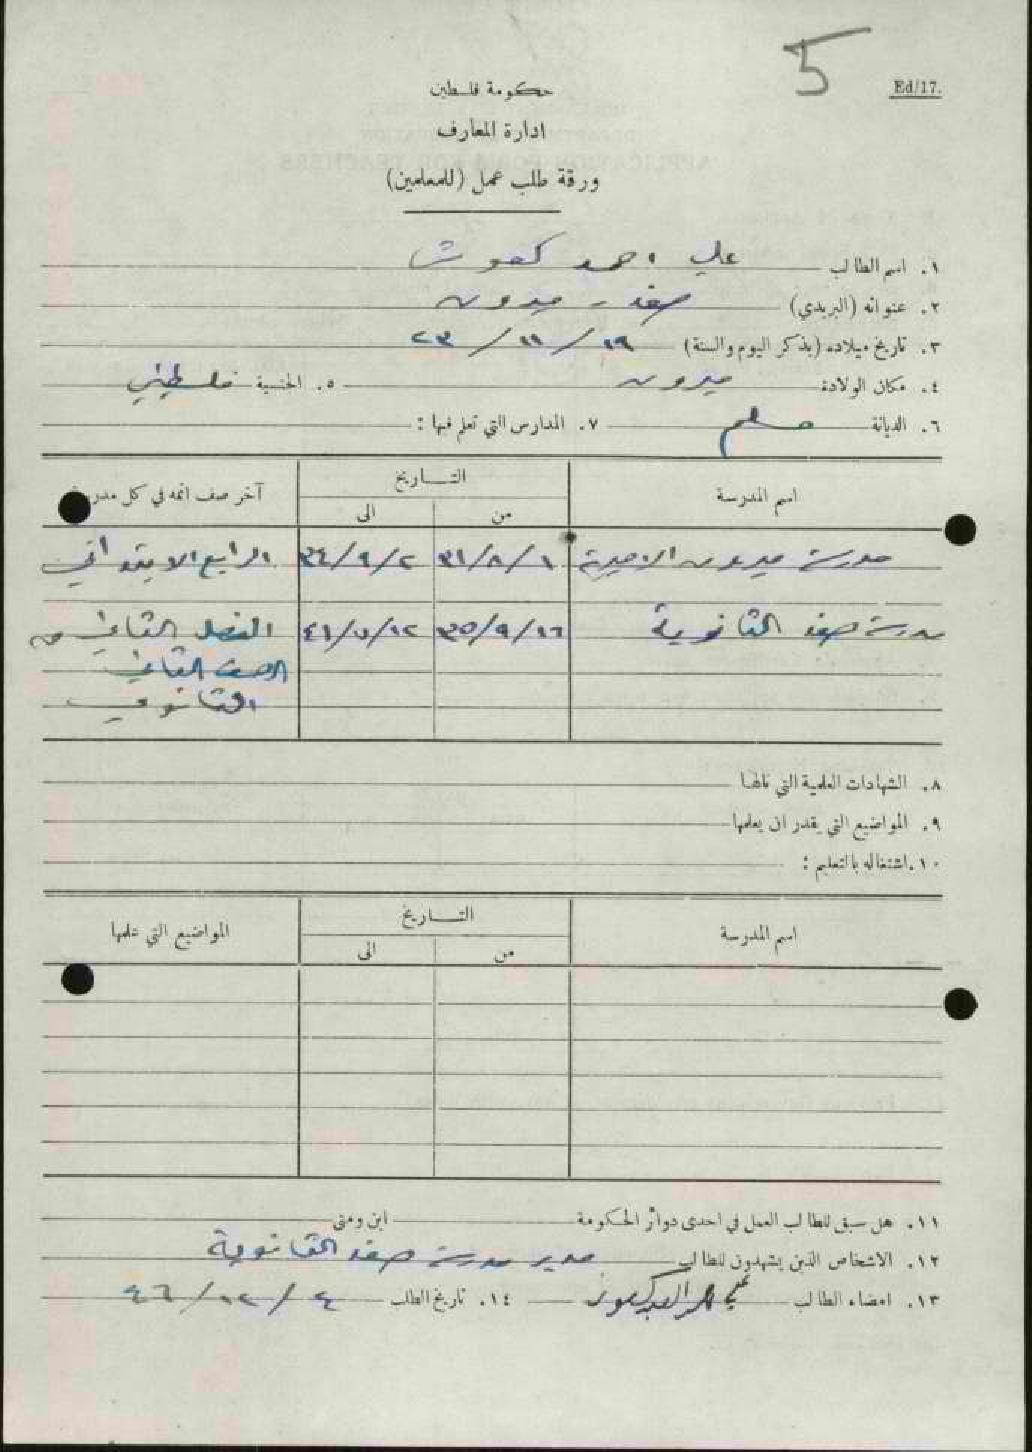 5
Ed/17.
حكومة فلسطين
ادارة المعارف
ورقة طلب عمل (للمعلمين)
١. اسم الطالب علي احمد كعوش
٢. عنوانه (البريدي) صفد - ميرون
٣. تاريخ ميلاده (بذكر اليوم والسنة) ١٩ / ١١ / ٢٣
٤. مكان الولادة ميرون ٥. الجنسية فلسطيني
٦. الديانة مسلم ٧. المدارس التي تعلم فيها :
اسم المدرسة التـــاريخ آخر صف اتمه في كل مدرسة
من الى
مدرسة ميرون الاميرية ١/٨/٣١ ٢/٩/٣٤ الرابع الابتدائي
مدرسة صفد الثانوية ١٦/٩/٣٥ ١٢/٧/٤١ الفصل الثاني من
الصف الثاني
الثانوي
٨. الشهادات العلمية التي نالها
٩. المواضيع التي يقدر ان يعلمها
١٠. اشتغاله بالتعليم :
اسم المدرسة التـــاريخ المواضيع التي علمها
من الى
١١. هل سبق للطالب العمل في احدى دوائر الحكومة اين ومتى
١٢. الاشخاص الذين يشهدون للطالب مدير مدرسة صفد الثانوية
١٣. امضاء الطالب ١٤. تاريخ الطلب ٤ / ١٢ / ٤٦